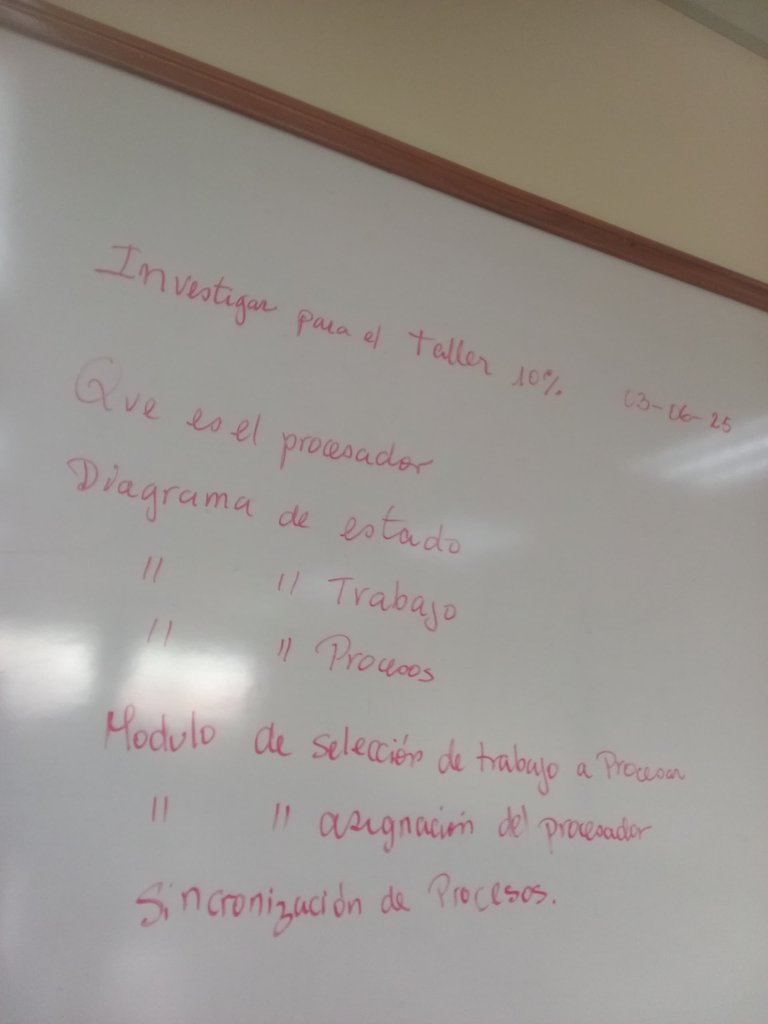 Investigar para el taller 10% 03-06-25
Que es el procesador
Diagrama de estado
" " Trabajo
" " Procesos
Modulo de selección de trabajo a Procesar
" " asignación del procesador
Sincronización de Procesos.